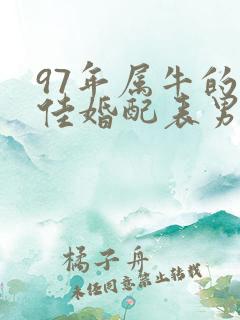 97年属牛的
佳婚配表男
橘子舟
未经同意禁止转载